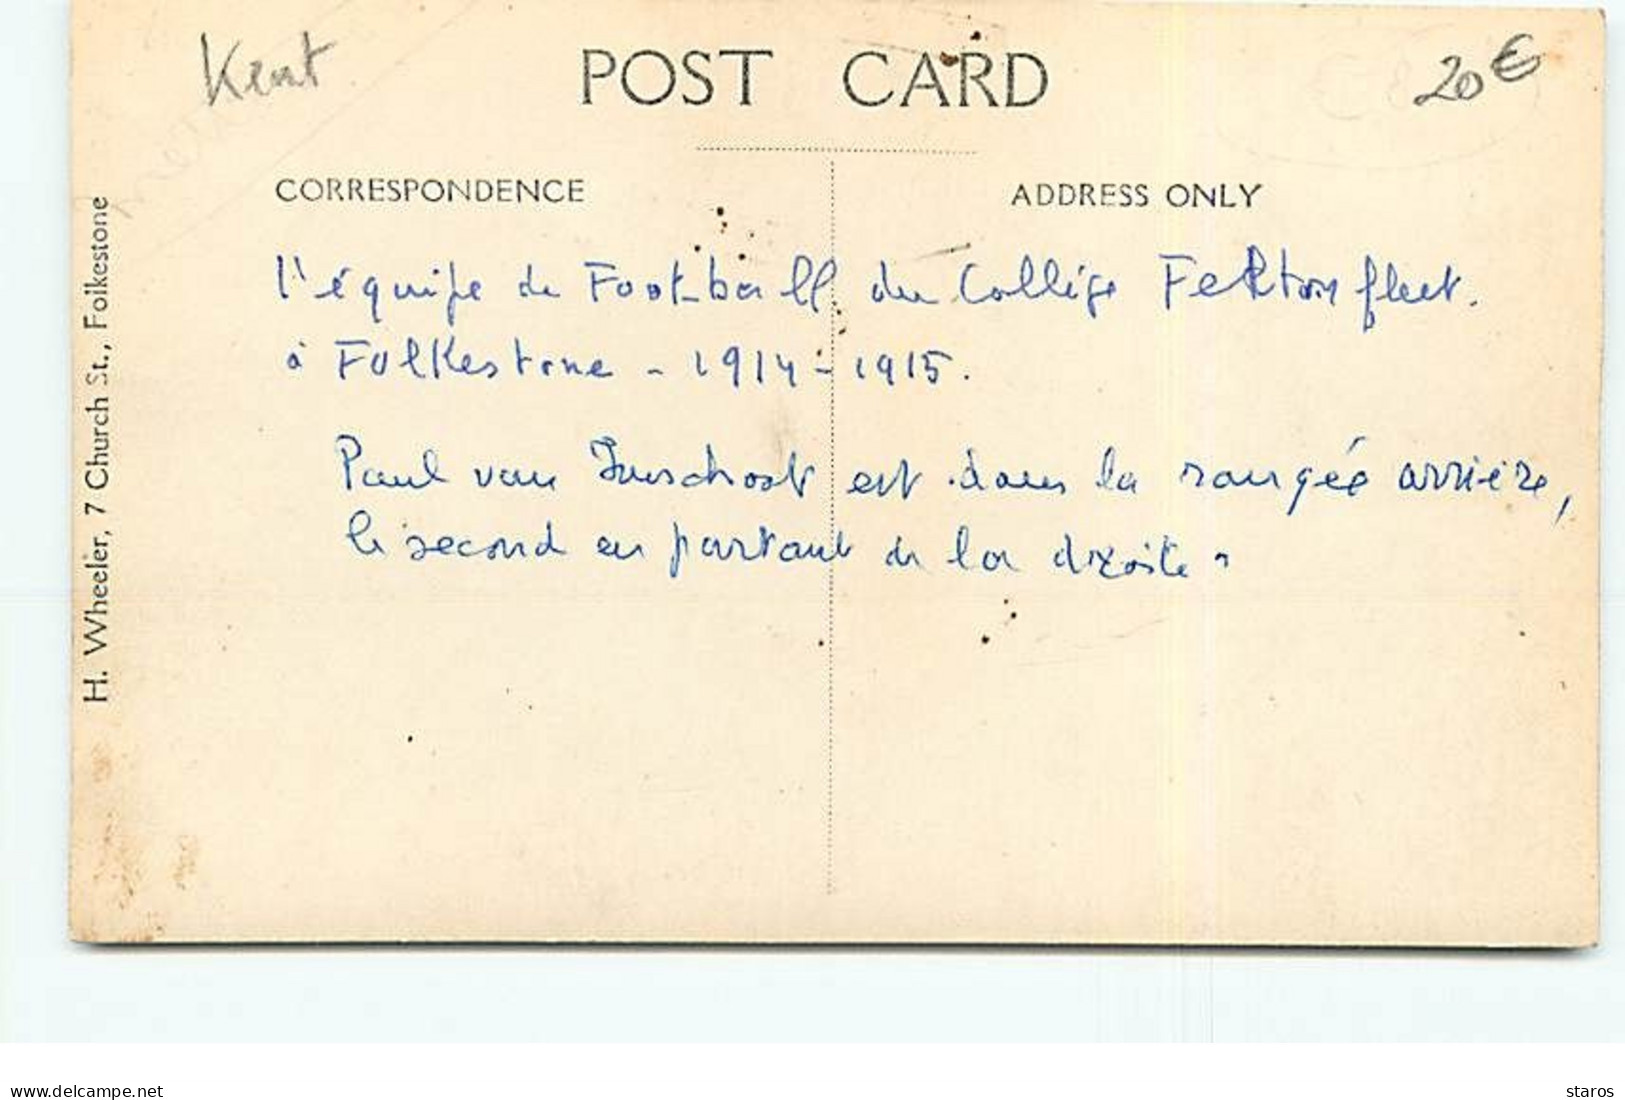 Kent
20€
POST CARD
CORRESPONDENCE
ADDRESS ONLY
l'équipe de Foot-ball du Collège Feltonfleet.
à Folkestone - 1914-1915.
Paul van Imschoot est dans la rangée arrière,
le second en partant de la droite.
H. Wheeler, 7 Church St., Folkestone
www.delcampe.net
staros